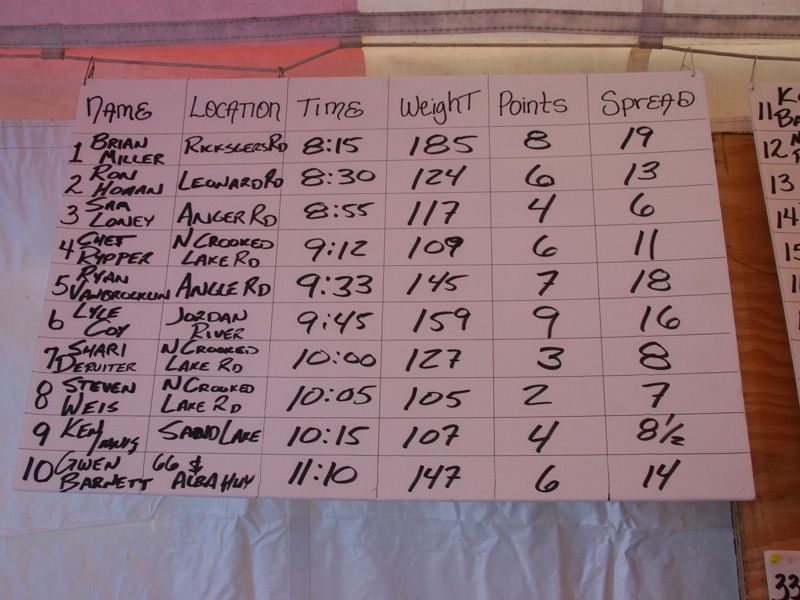 NAME LOCATION TIME WEIGHT POINTS SPREAD
1 BRIAN MILLER RICKSGERS RD 8:15 185 8 19
2 RON HOMAN LEONARD RD 8:30 124 6 13
3 SAM LONEY ANGER RD 8:55 117 4 6
4 CHET RYPPER N CROOKED LAKE RD 9:12 109 6 11
5 RYAN VANBROCKLIN ANGLE RD 9:33 145 7 18
6 LYLE COY JORDAN RIVER 9:45 159 9 16
7 SHARI DERUITER N CROOKED LAKE RD 10:00 127 3 8
8 STEVEN WEIS N CROOKED LAKE RD 10:05 105 2 7
9 KEN SAND LAKE 10:15 107 4 8 1/2
10 GWEN BARNETT 66 & ALBA HWY 11:10 147 6 14
11
12
13
14
33